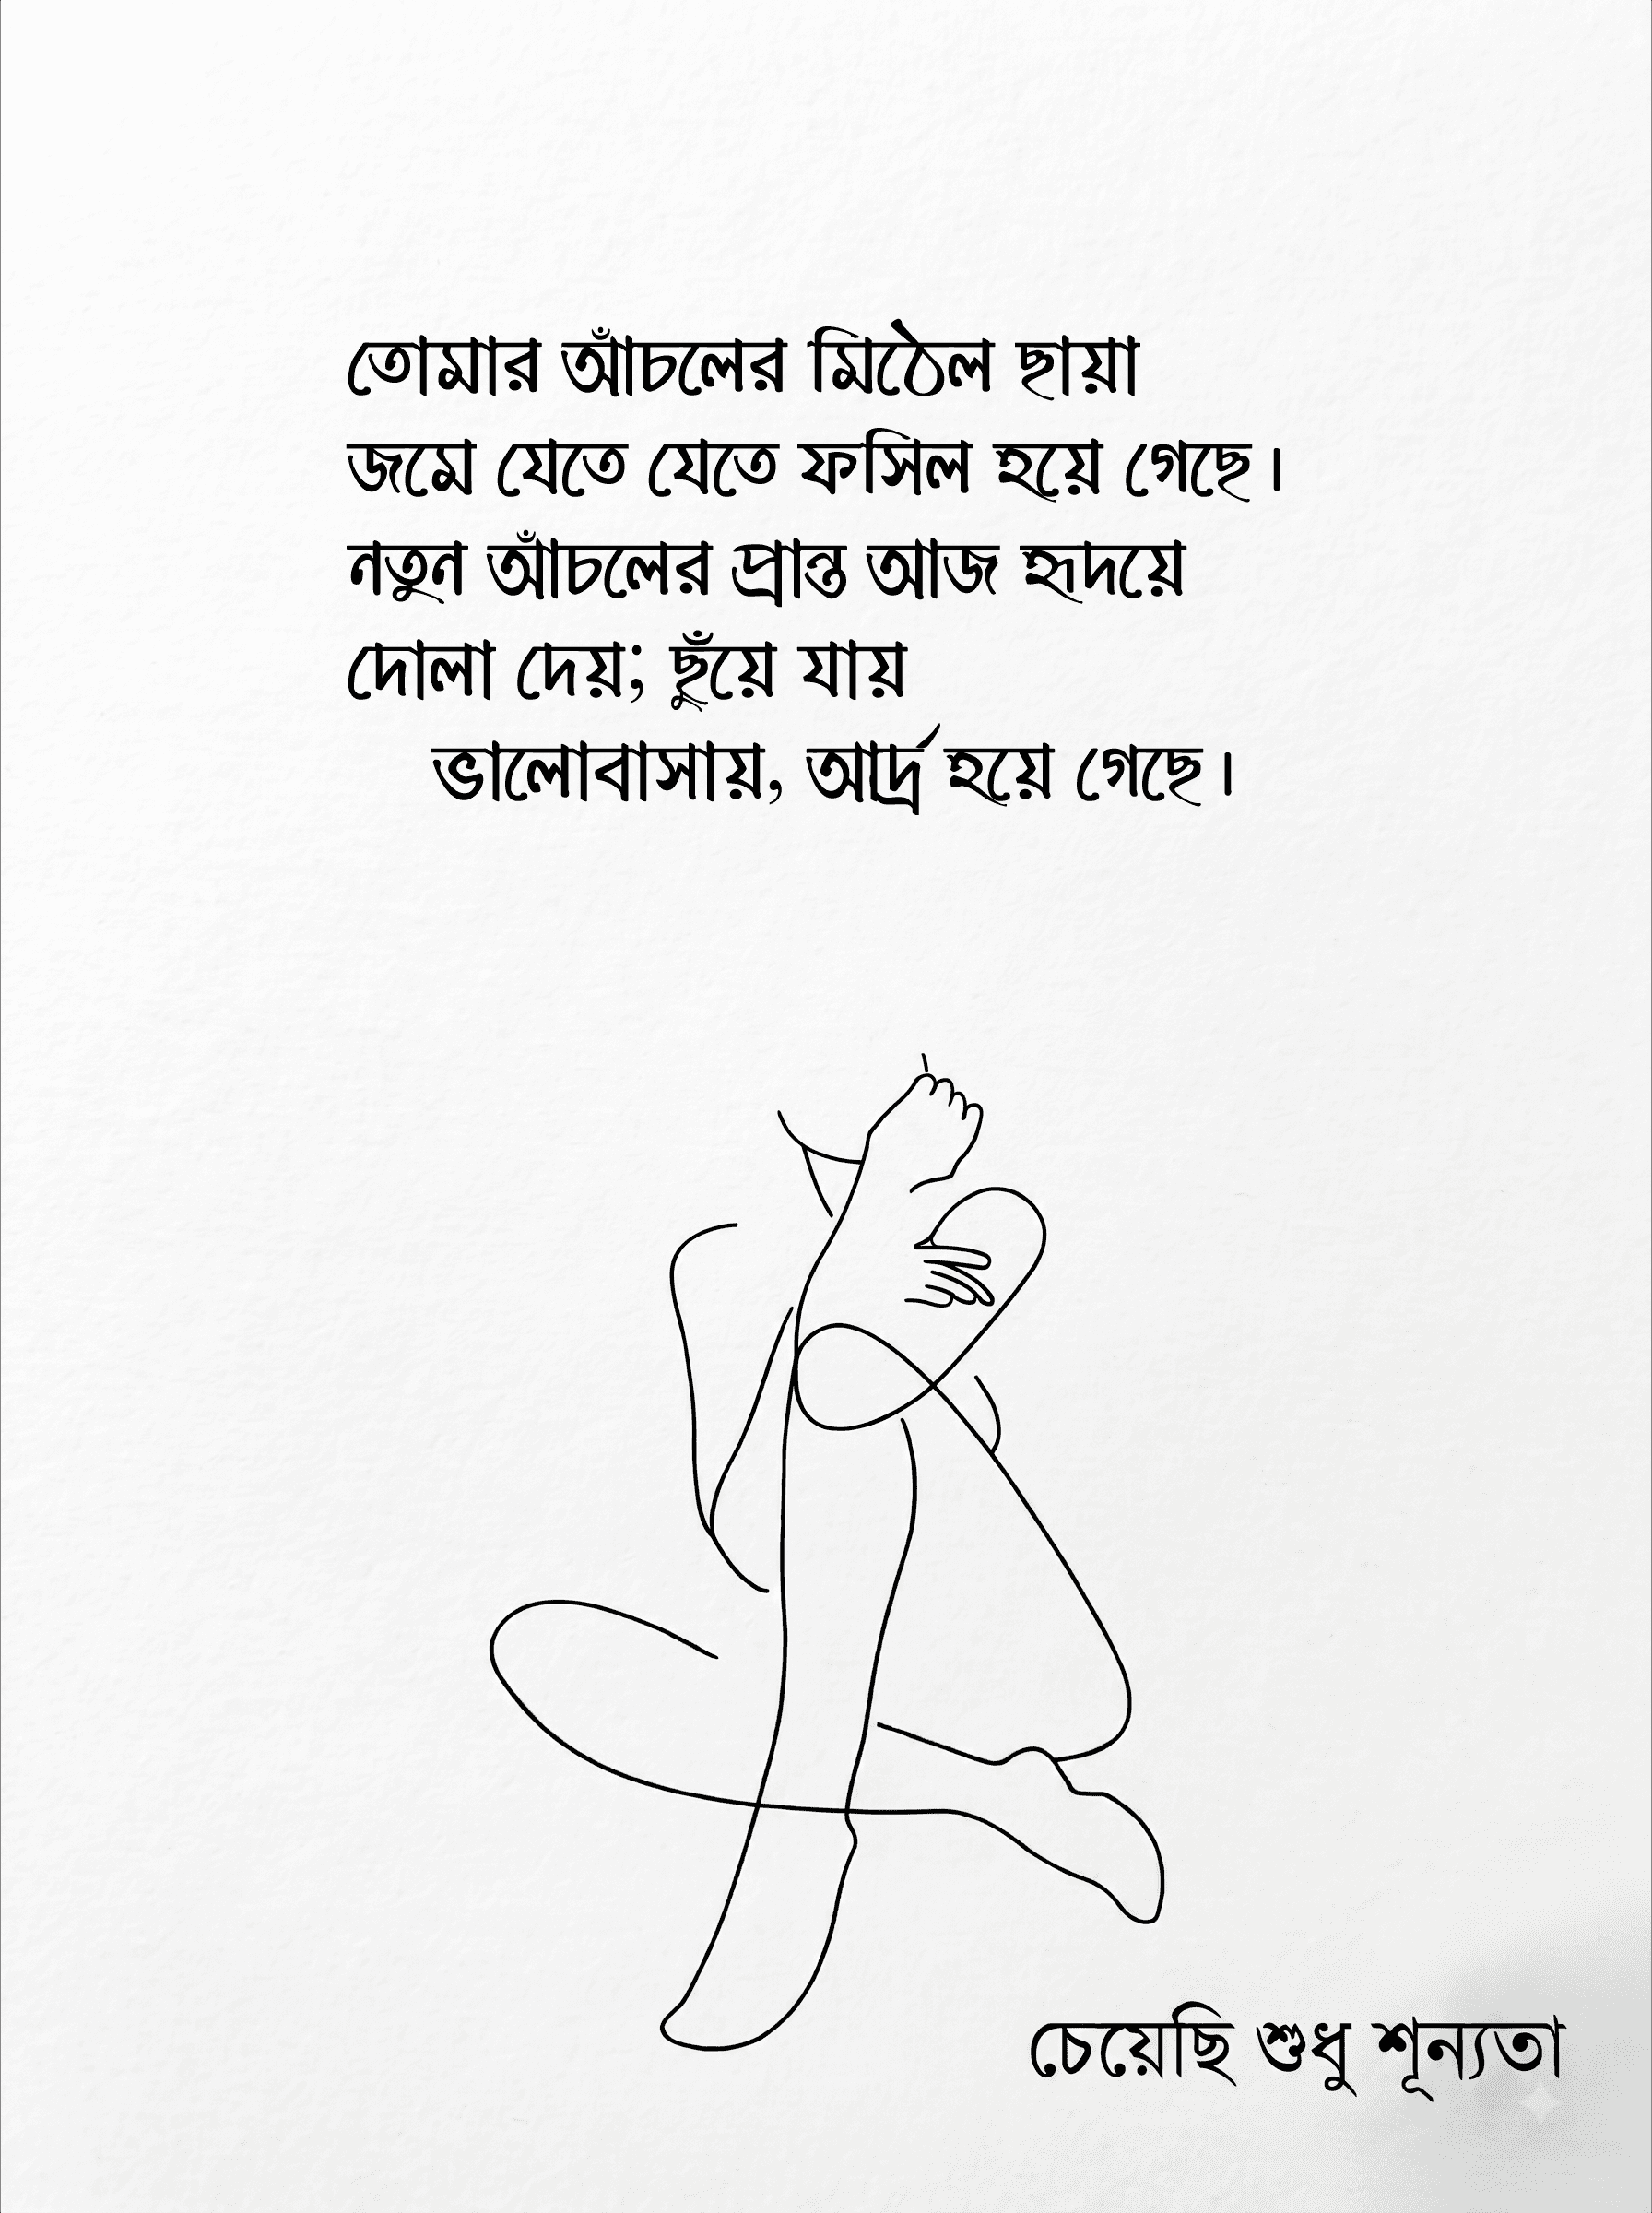 তোমার আঁচলের মিঠেল ছায়া
জমে যেতে যেতে ফসিল হয়ে গেছে।
নতুন আঁচলের প্রান্ত আজ হৃদয়ে
দোলা দেয়; ছুঁয়ে যায়
ভালোবাসায়, আর্দ্র হয়ে গেছে।
চেয়েছি শুধু শূন্যতা